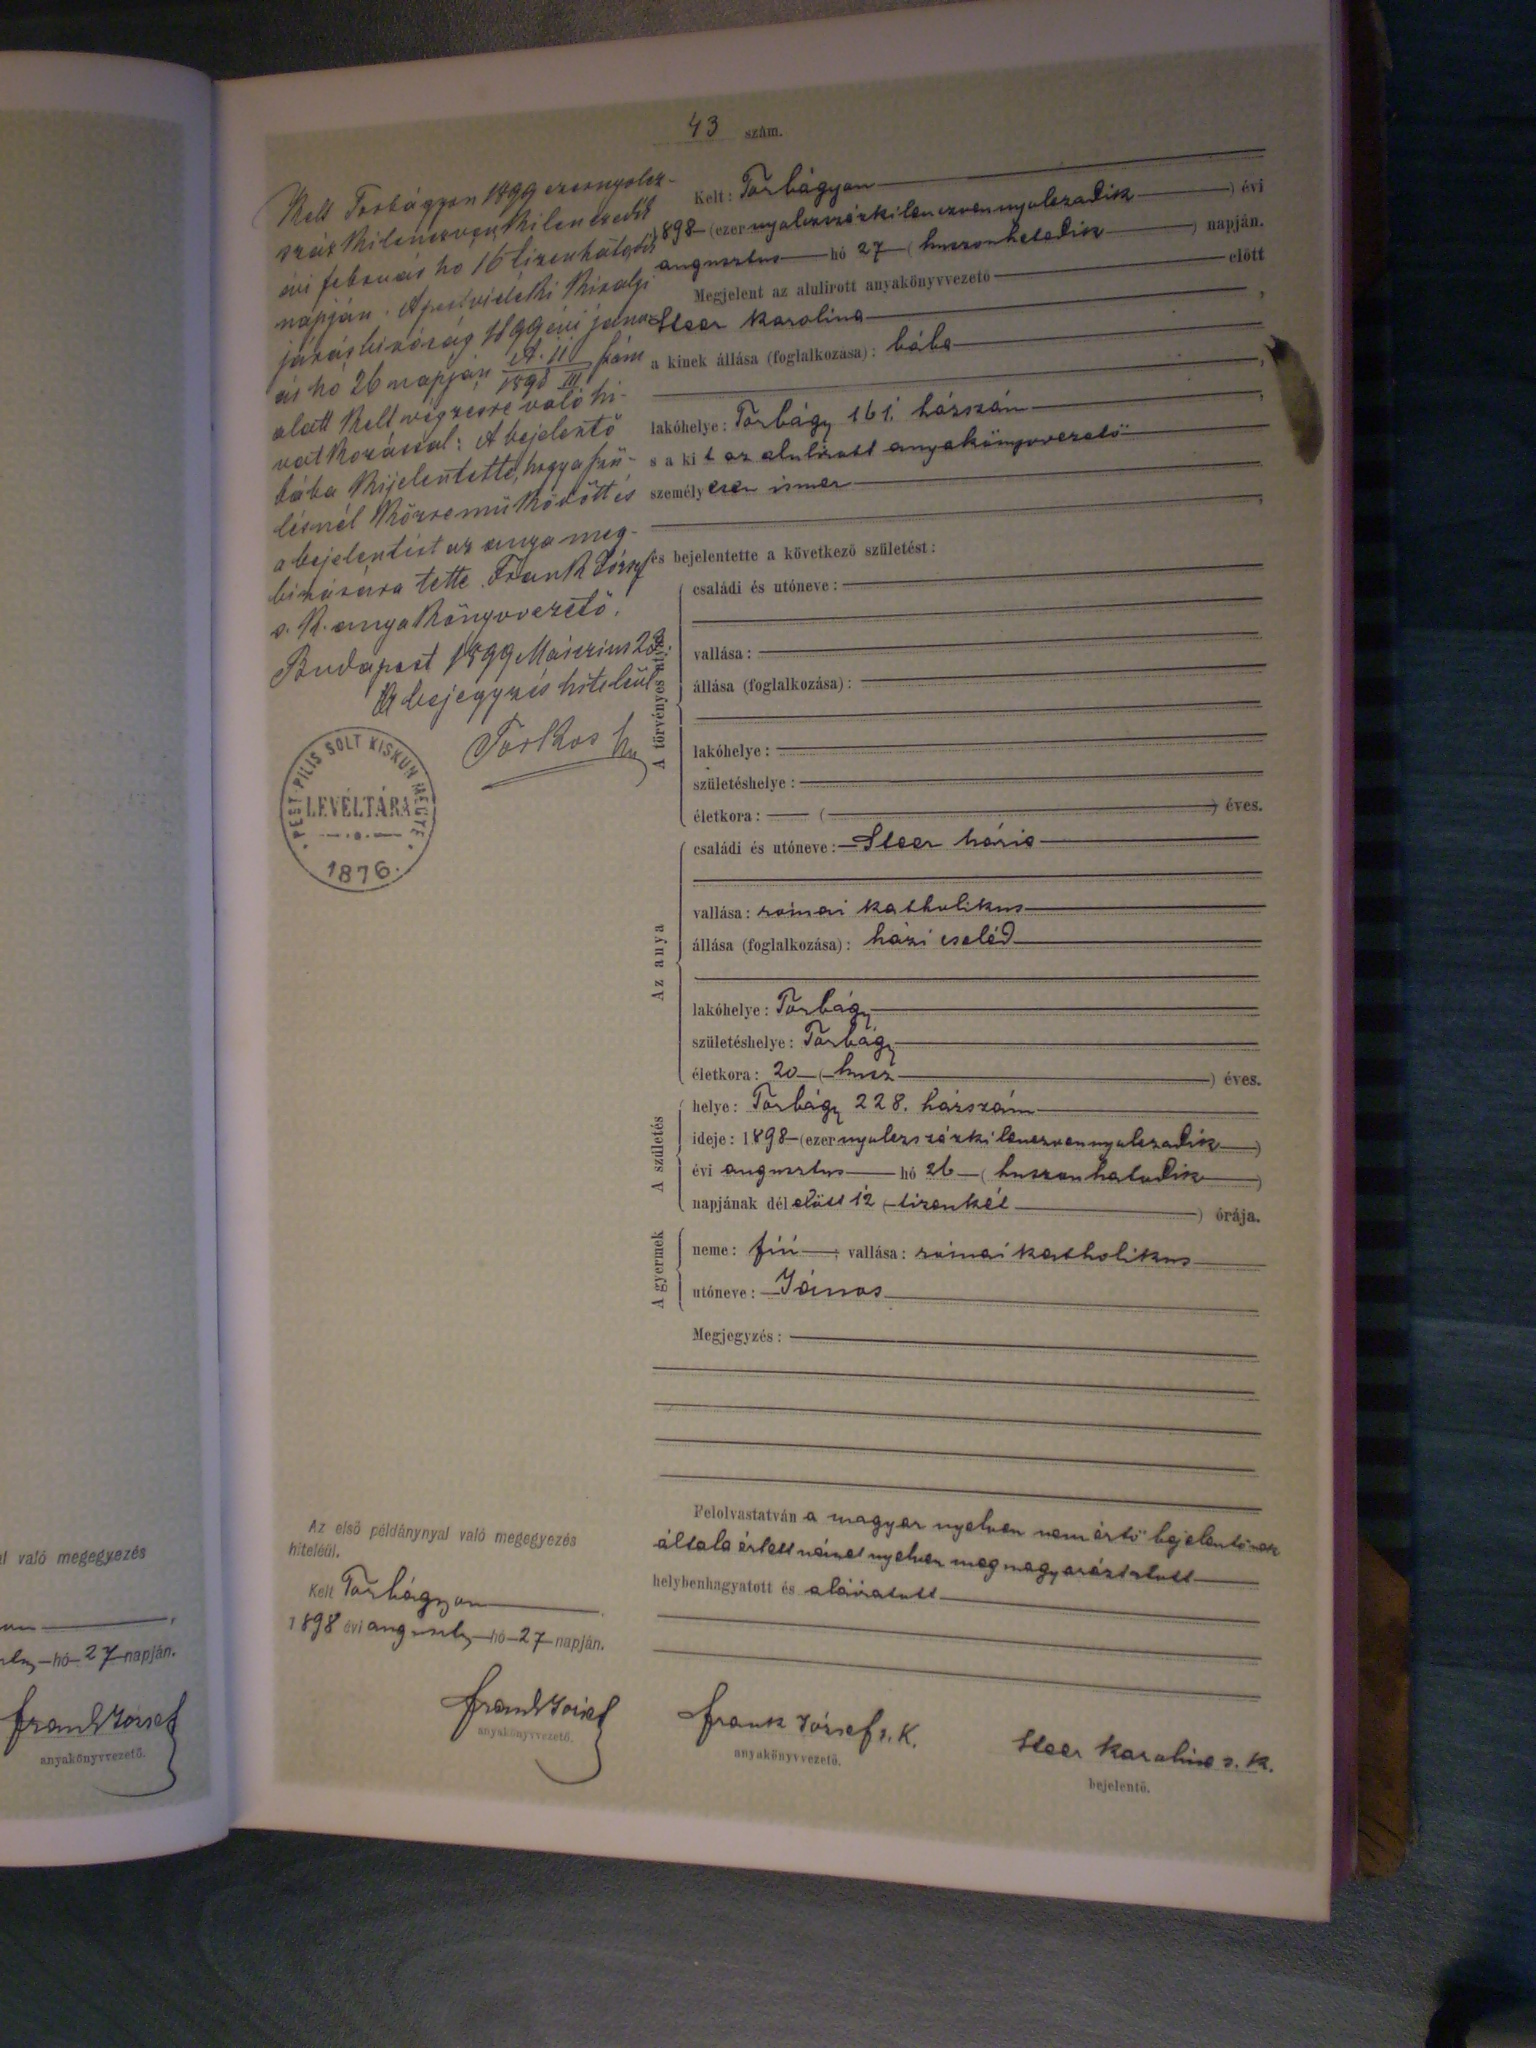 43 szám.
Kelt Torbágyon 1899 ezernyolcz-
száz kilenczven kilenczedik
évi február hó 16 tizenhatodik
napján. A pestvidéki kir alji
járásbiróság 1899 évi janu-
ár hó 26 napján A. 11 / 1898 III szám
alatt kelt végzésre való hi-
vatkozással: A bejelentő
bába kijelentette, hogy a szü-
lésnél közreműködött és
a bejelentést az anya meg-
bizására tette. Frank József
s. k. anyakönyvvezető.
Budapest 1899 Márczius 23.
A bejegyzés hiteléül
Torkos
PEST PILIS SOLT KISKUN MEGYE
LEVÉLTÁRA
1876.
Kelt: Torbágyon
1898 (ezernyolczszázkilenczvennyolczadik) évi
augusztus hó 27 (huszonhetedik) napján.
Megjelent az alulirott anyakönyvvezető előtt
Steer Karolina,
a kinek állása (foglalkozása): bába
,
lakóhelye: Torbágy 161. házszám,
s a kit az alulirott anyakönyvvezető
személyesen ismer
,
és bejelentette a következő születést:
A törvényes atya
családi és utóneve:
vallása:
állása (foglalkozása):
lakóhelye:
születéshelye:
életkora: ( ) éves.
Az anya
családi és utóneve: Steer Mária
vallása: római katholikus
állása (foglalkozása): házi cseléd
lakóhelye: Torbágy
születéshelye: Torbágy
életkora: 20 (husz) éves.
A születés
helye: Torbágy 228. házszám
ideje: 1898 (ezernyolczszázkilenczvennyolczadik)
évi augusztus hó 26 (huszonhatodik)
napjának délelőtt 12 (tizenkét) órája.
A gyermek
neme: fiú; vallása: római katholikus
utóneve: János
Megjegyzés:
Felolvastatván a magyar nyelven nem értő bejelentőnek
általa értett német nyelven megmagyaráztatott
helybenhagyatott és aláiratott
Az első példánynyal való megegyezés
hiteléül.
Kelt Torbágyon,
1898 évi auguszty hó 27 napján.
Frank József
anyakönyvvezető.
Frank József s. k.
anyakönyvvezető.
Steer Karolina s. k.
bejelentő.
al való megegyezés
,
hó 27 napján.
Frank József
anyakönyvvezető.